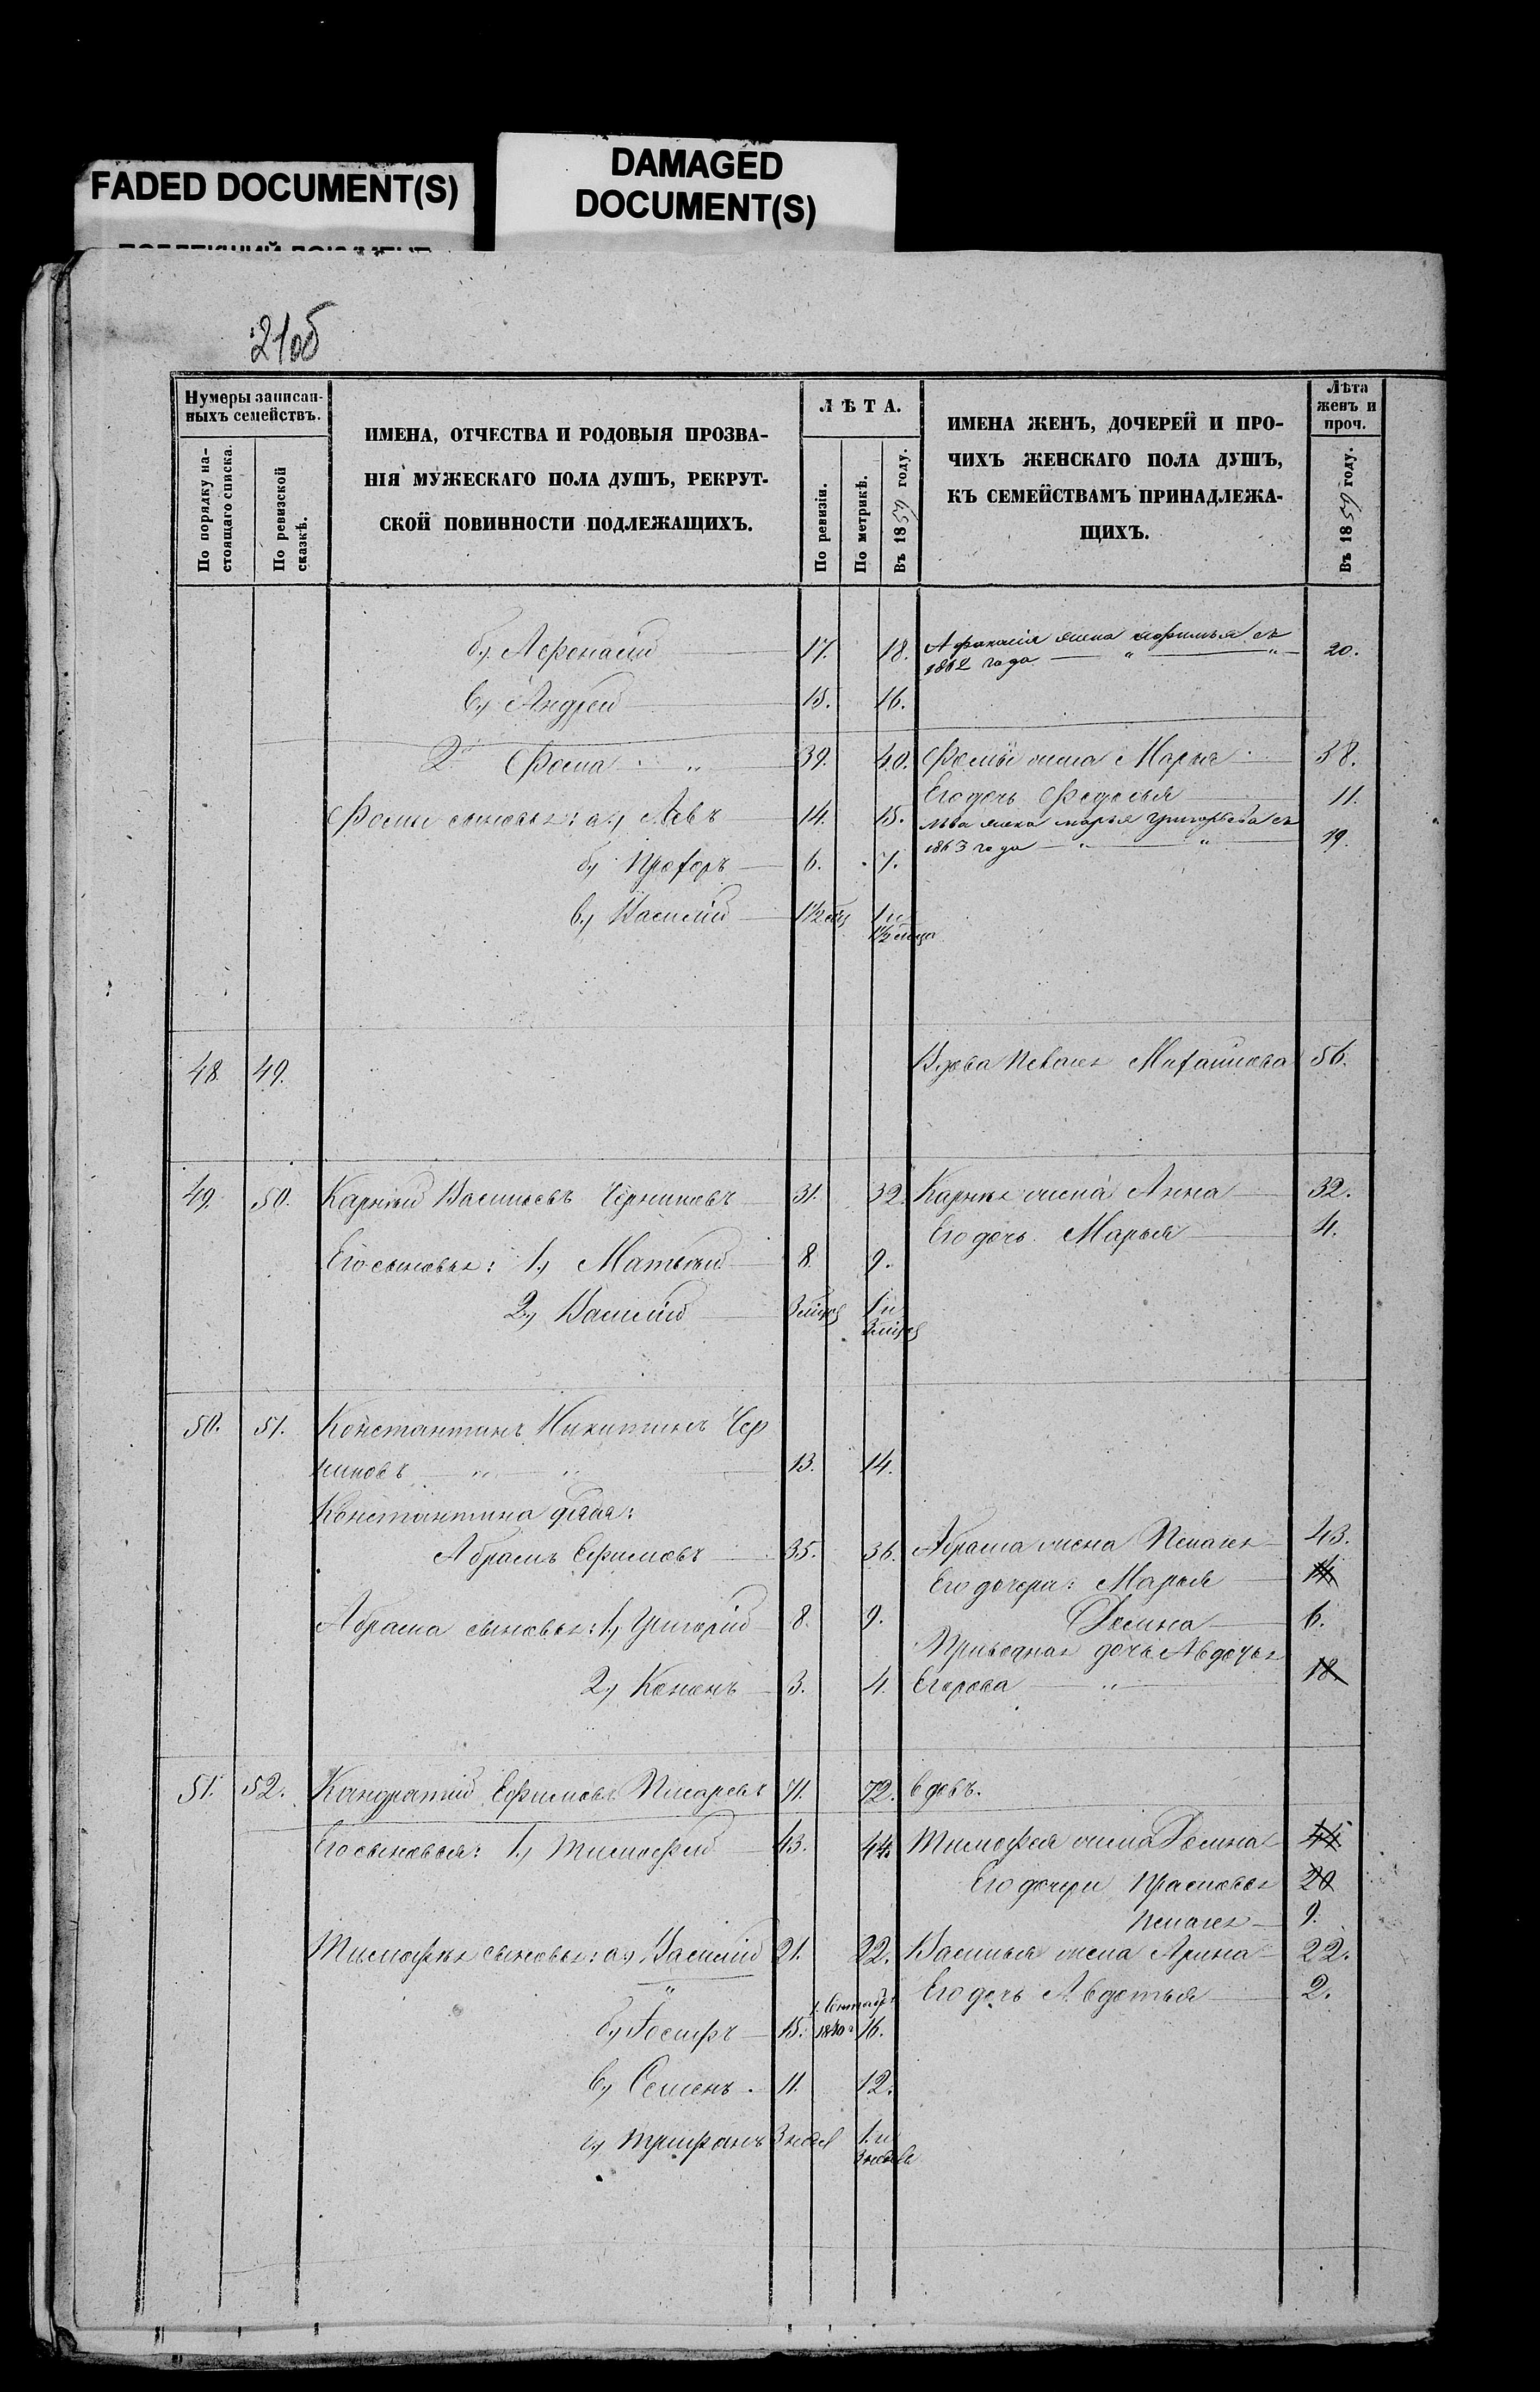 FADED DOCUMENT(S)
DAMAGED
DOCUMENT(S)
21об
Нумеры записан-
ныхъ семействъ.
По порядку на-
стоящаго списка.
По ревизской
сказкѣ.
ИМЕНА, ОТЧЕСТВА И РОДОВЫЯ ПРОЗВА-
НІЯ МУЖЕСКАГО ПОЛА ДУШЪ, РЕКРУТ-
СКОЙ ПОВИННОСТИ ПОДЛЕЖАЩИХЪ.
ЛѢТА.
По ревизіи.
По метрикѣ.
Въ 1859 году.
ИМЕНА ЖЕНЪ, ДОЧЕРЕЙ И ПРО-
ЧИХЪ ЖЕНСКАГО ПОЛА ДУШЪ,
КЪ СЕМЕЙСТВАМЪ ПРИНАДЛЕЖА-
ЩИХЪ.
Лѣта
женъ и
проч.
Въ 1859 году.
б.) Афонасій 17. 18. Афанасія жена съ 20.
1862 года " "
в.) Андрей 15. 16.
2й Фома " 39. 40. Фомы жена Марья 38.
Его дочь Федосья 11.
Фомы сыновья: а.) Левъ 14. 15. Льва жена марья Григорьева съ
1863 года " " 19.
б.) Прохоръ 6. 7.
в.) Василій 1½ мѣс 1 и
1½ мѣсца
48. 49. Вдова Пелагея Михайлова 56.
49. 50. Карпѣй Васильевъ Черниковъ 31. 32. Карпея жена Анна 32.
Его дочь Марья 4.
Его сыновья: 1.) Матвѣй 8. 9.
2.) Василій 3 мѣсяц 1 и
3 мѣсяц
50. 51. Константинъ Никитинъ Чер
никовъ " " 13. 14.
Константина дядя:
Абрамъ Ефимовъ 35. 36. Абрама жена Пелагея 43.
Его дочери: Марья 14.
Абрама сыновья: 1.) Григорій 8. 9. Домна 6.
Приводная дочь Авдотья
2.) Кононъ 3. 4. Егорова " 18.
51. 52. Кандратій Ефимовъ Писаревъ 71. 72. вдовъ.
Его сыновья: 1.) Тимофей 43. 44. Тимофея жена Домна 44
Его дочери Прасковья 20
Пелагея 9.
Тимофея сыновья: а.) Василій 21. 22. Василья жена Арина 22.
" Его дочь Авдотья 2.
б.) Іосифъ 15. 16.
в.) Семенъ. 11. 12.
г.) Трифонъ 3 недел 1. и
3 недели